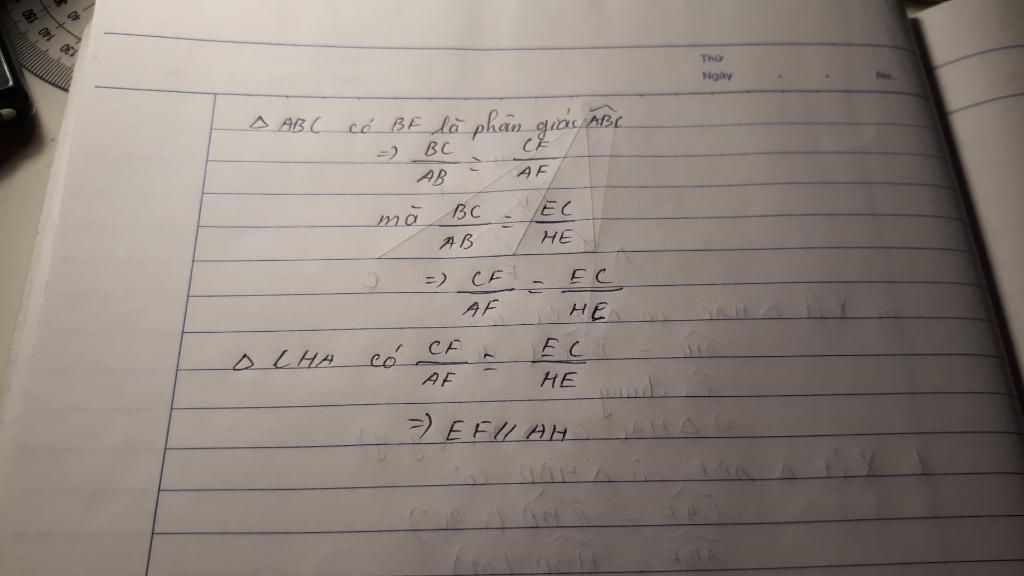 Thứ
Ngày . . No.
Δ ABC có BF là phân giác \widehat{ABC}
=> BC/AB = CF/AF
mà BC/AB = EC/HE
=> CF/AF = EC/HE
Δ CHA có CF/AF = EC/HE
=> EF // AH